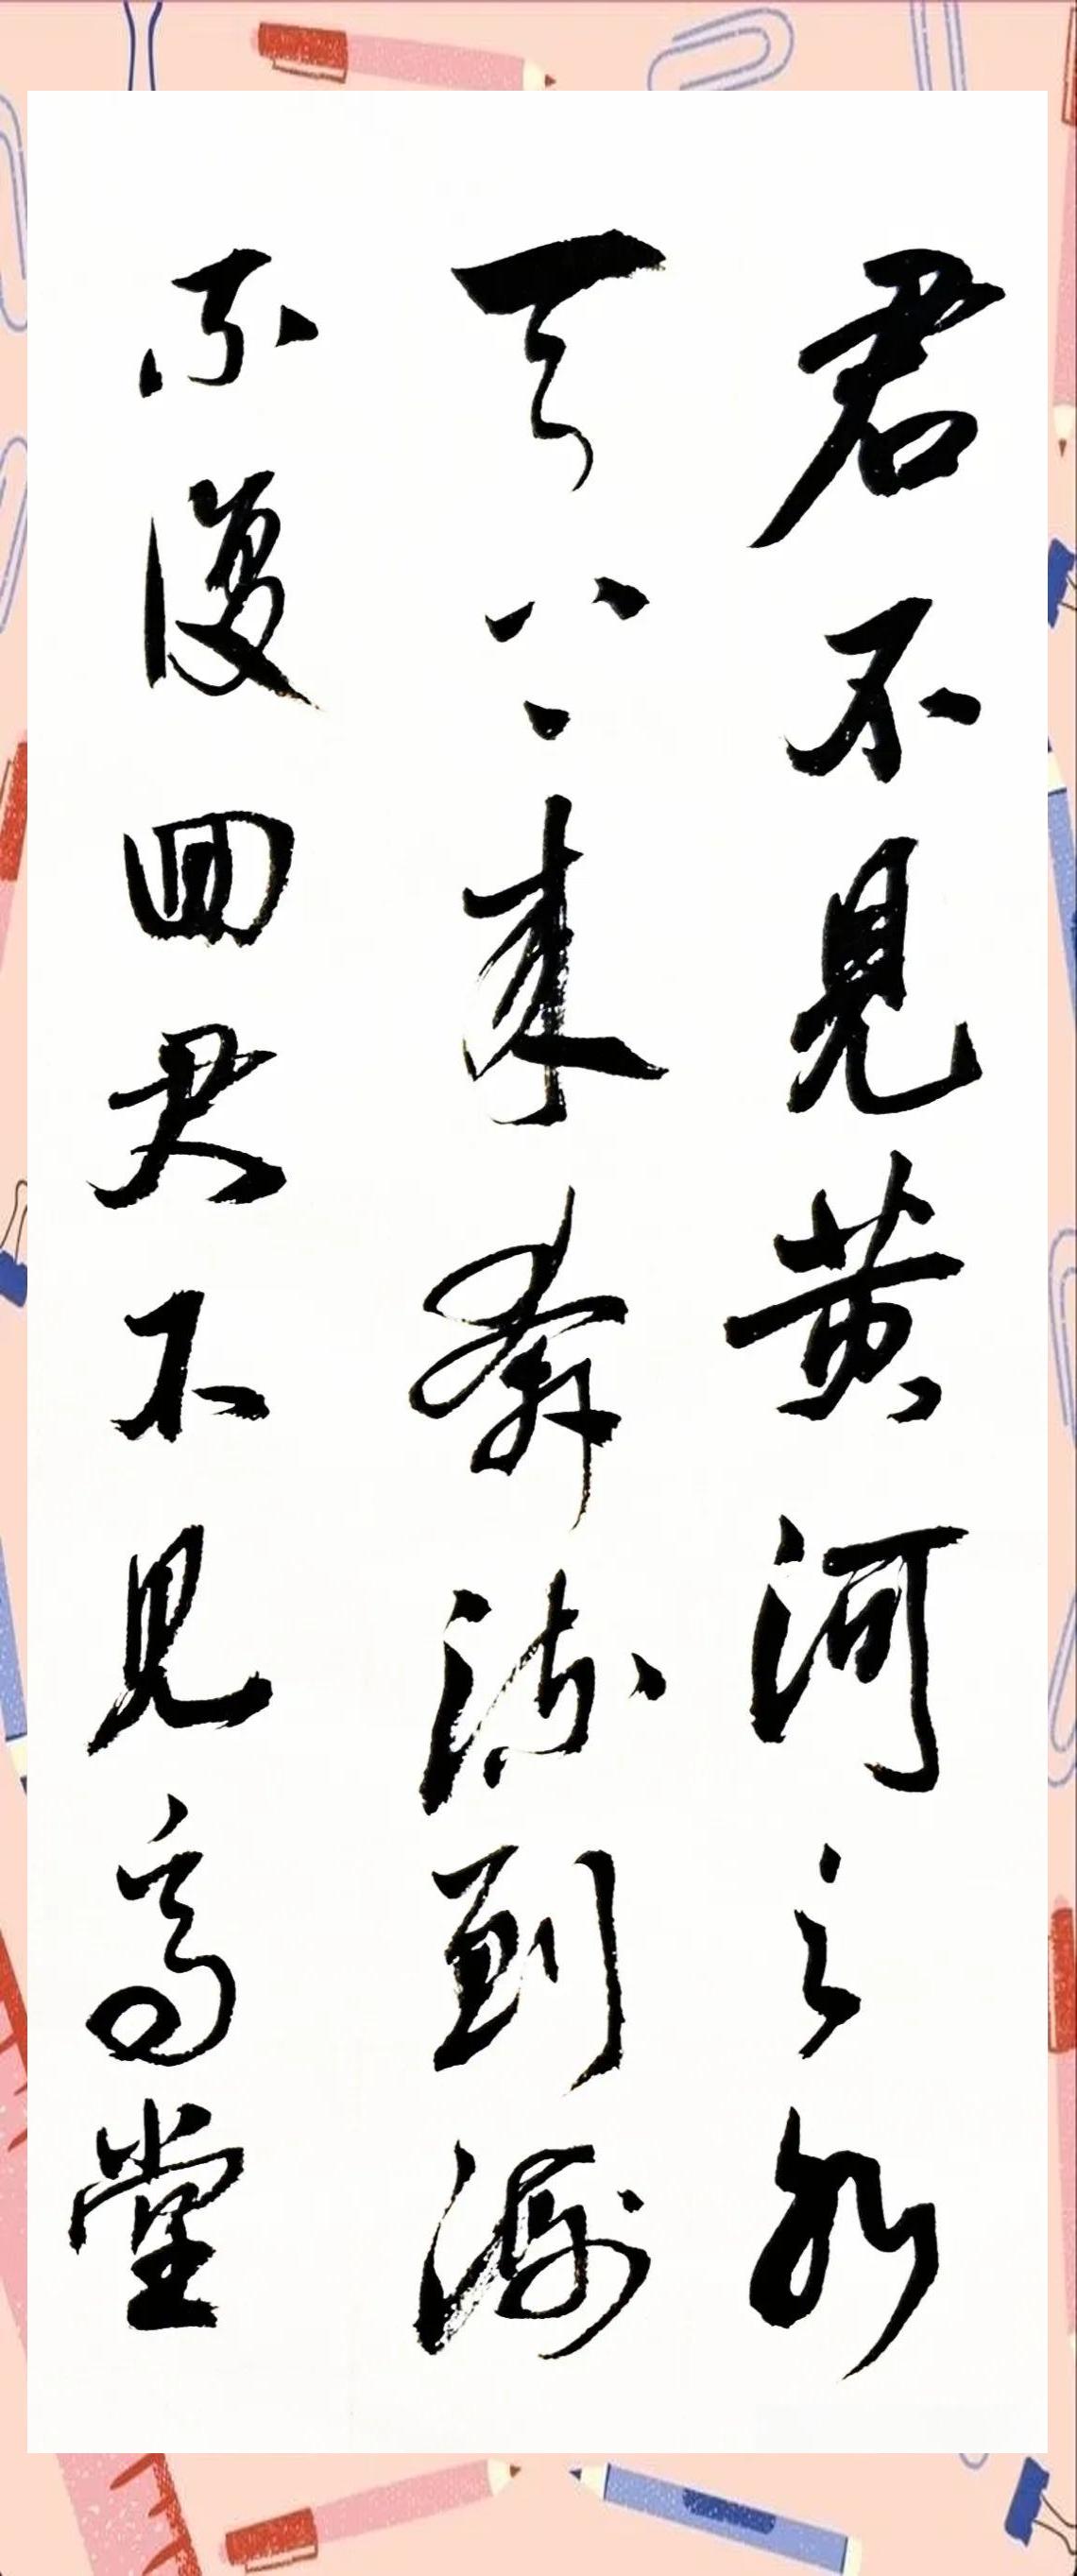 君不見黄河之水
天上来奔流到海
不復回君不見高堂